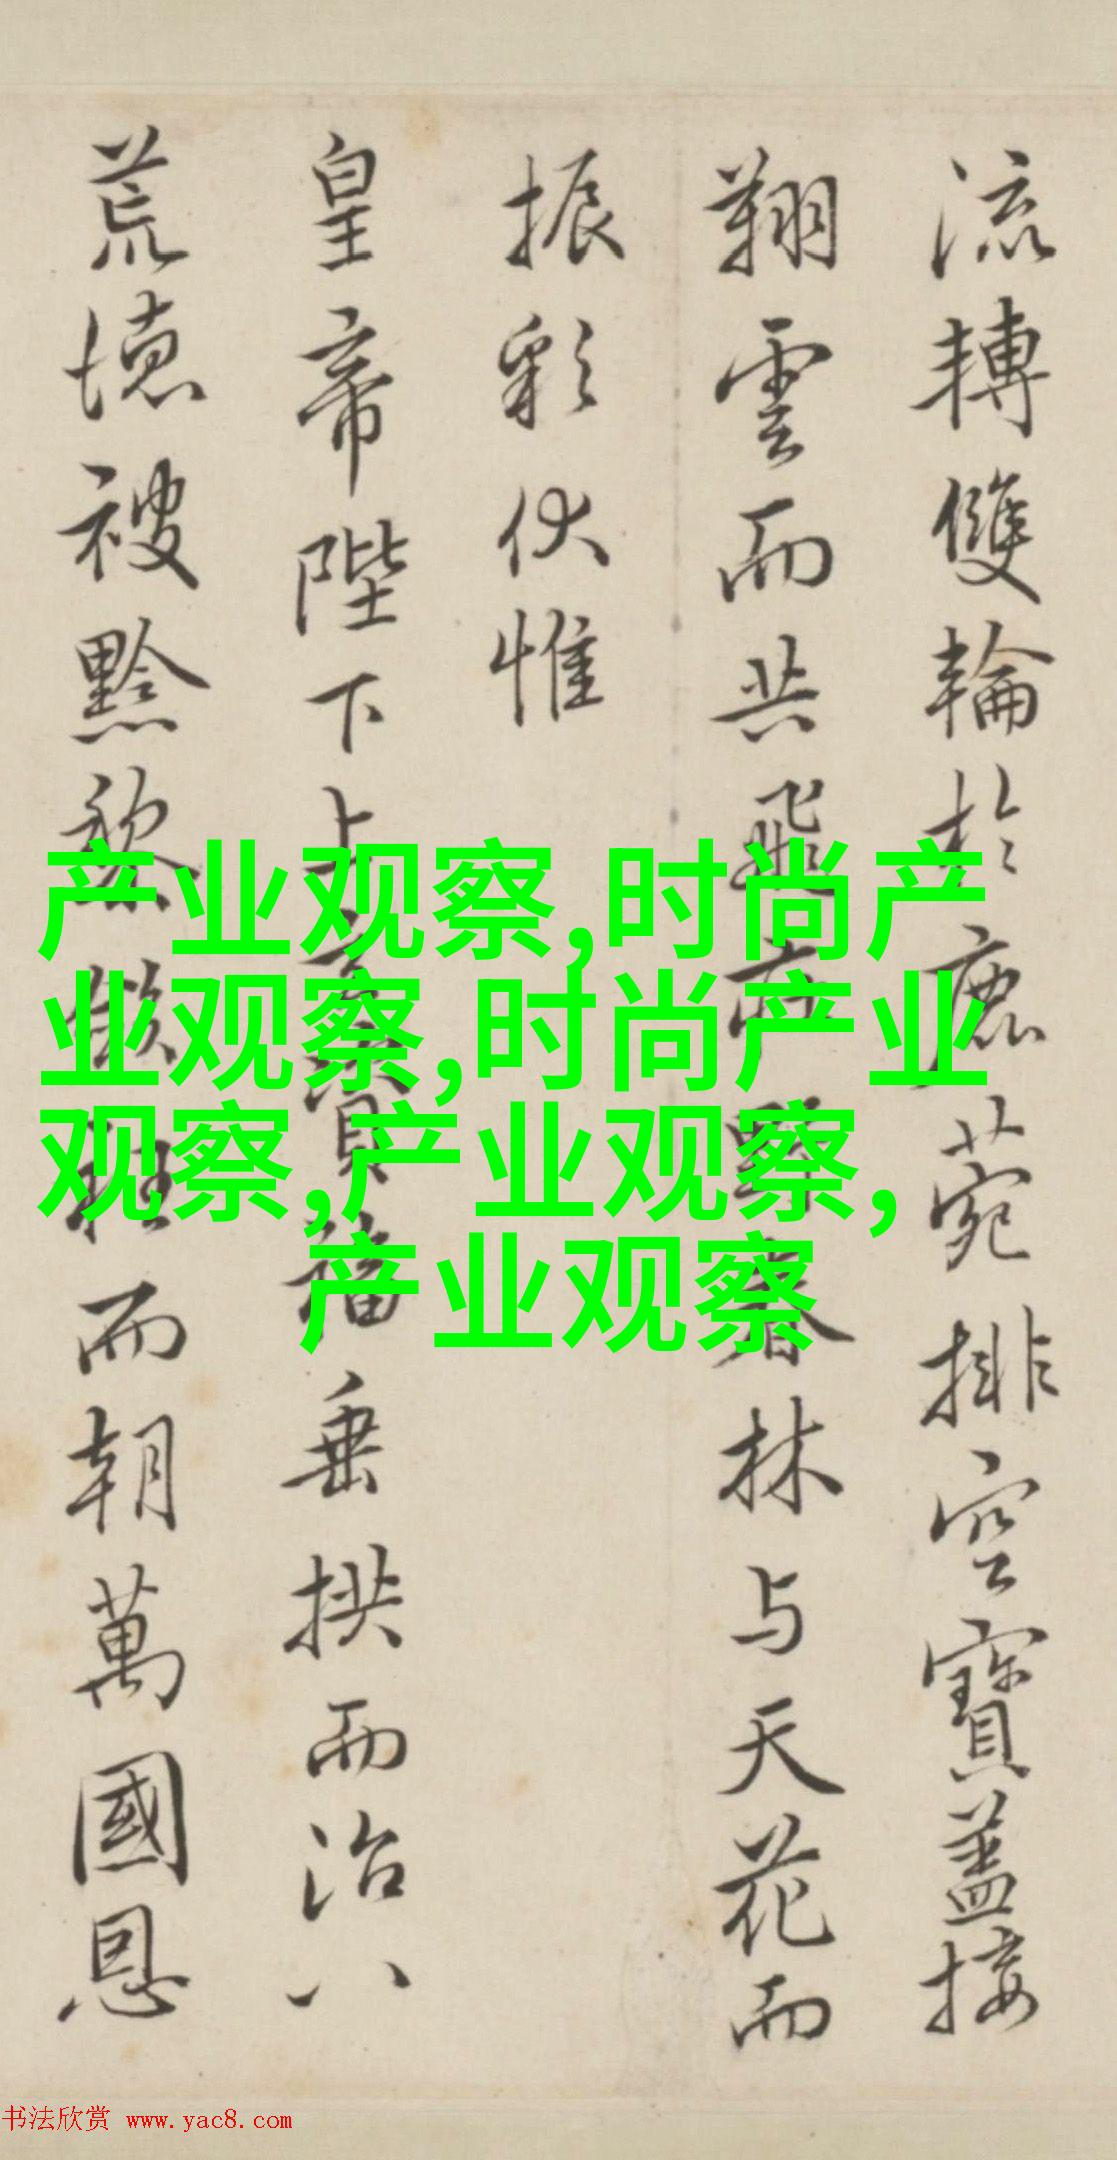 流轉雙輪於鹿菀排空寶蓋接
翔雲而共飛莊野春林与天花而
振彩伏惟
皇帝陛下上玄資福垂拱而治八
荒德被黔黎斂衽而朝萬國恩
产业观察,时尚产
业观察,时尚产业
观察,产业观察,
产业观察
书法欣赏 www.yac8.com